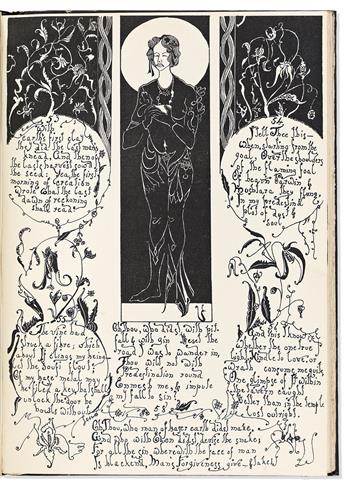 53
With
Earth's first clay
They did the last man's
knead, And then of
the last harvest sow'd
the seed; Yea, the first
morning of creation
wrote what the last
dawn of reckoning
shall read
54
I tell Thee this—
When, starting from the
goal, Over the shoulders
of the flaming foal
of heav'n Parwin &
they flung
In my predestin'd
plot of dust &
soul
55
The Vine had
struck a fibre; which
about If clings my being—
let the Soufi flout;
Of my base metal may
be filed a key, that shall
unlock the door he
howls without
Oh, Thou, who didst with pit-
fall & with gin Beset the
road I was to wander in,
Thou wilt not with
Predestination round
Enmesh me, & impute
my fall to sin
And this I know:
whether the one true
Light, Kindle to Love, or
Wrath consume me quite
One glimpse of It within
the Tavern caught
Better than in the temple
lost outright
58
Oh, Thou, who man of baser earth didst make,
And who with Eden didst devise the snake;
For all the sin wherewith the face of man
Is blacken'd, Man's forgiveness give—& take!